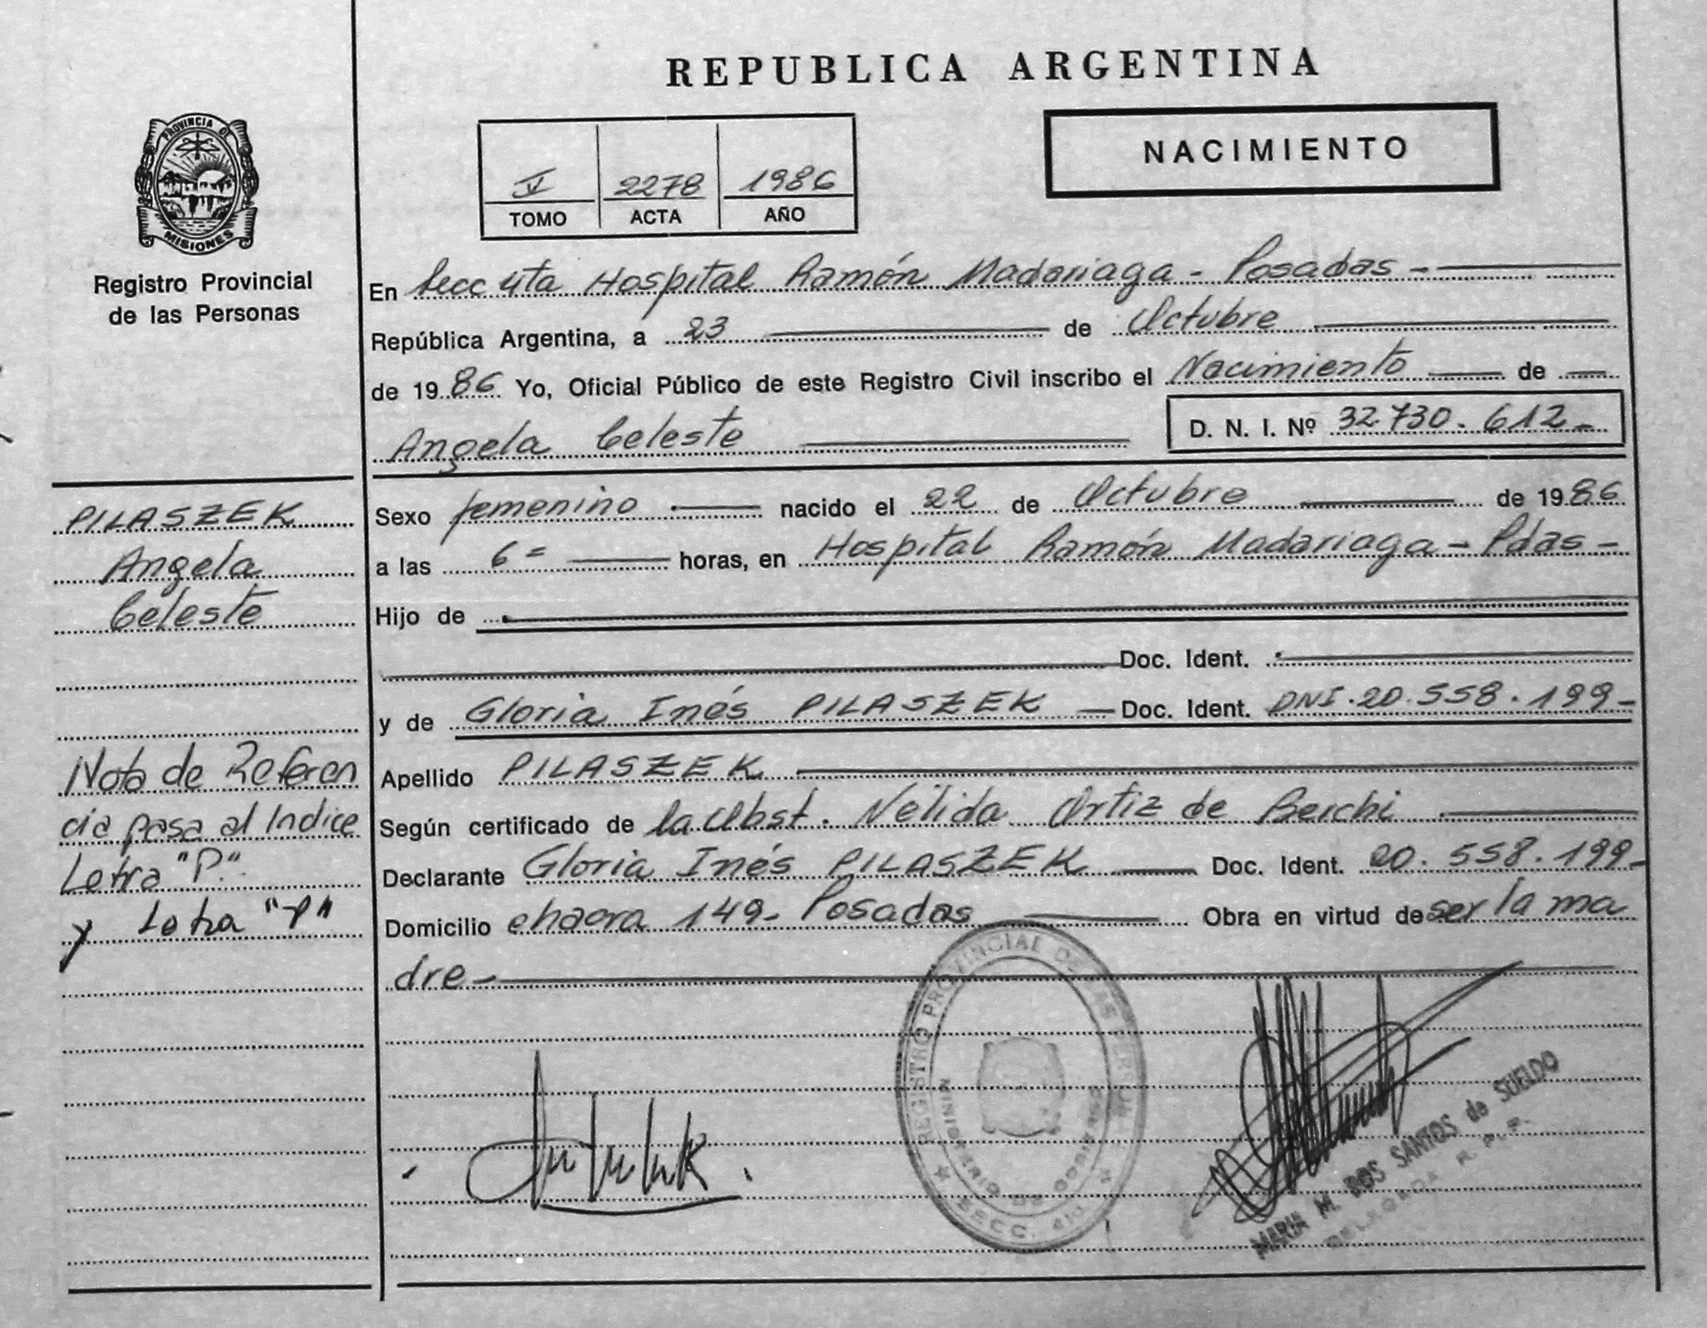 REPUBLICA ARGENTINA
PROVINCIA DE
MISIONES
Registro Provincial
de las Personas
V 2278 1986
TOMO ACTA AÑO
NACIMIENTO
En Secc 4ta Hospital Ramón Madariaga - Posadas -
República Argentina, a 23 de Octubre
de 1986 Yo, Oficial Público de este Registro Civil inscribo el Nacimiento de
Angela Celeste D. N. I. Nº 32.730.612-
Sexo femenino nacido el 22 de Octubre de 1986
a las 6= horas, en Hospital Ramón Madariaga - Pdas -
Hijo de
Doc. Ident.
y de Gloria Inés PILASZEK Doc. Ident. DNI.20.558.199-
Apellido PILASZEK
Según certificado de la Obst. Nélida Ortiz de Berchi
Declarante Gloria Inés PILASZEK Doc. Ident. 20.558.199-
Domicilio chacra 149- Posadas Obra en virtud de ser la ma
dre-
PILASZEK
Angela
Celeste
Nota de Referen
cia pasa al Indice
Letra "P".
y Letra "P"
REGISTRO PROVINCIAL DE LAS PERSONAS
MINISTERIO DE GOBIERNO
SECC. 4ta
MARIA M. DOS SANTOS de SUELDO
DELEGADA R. P. P.